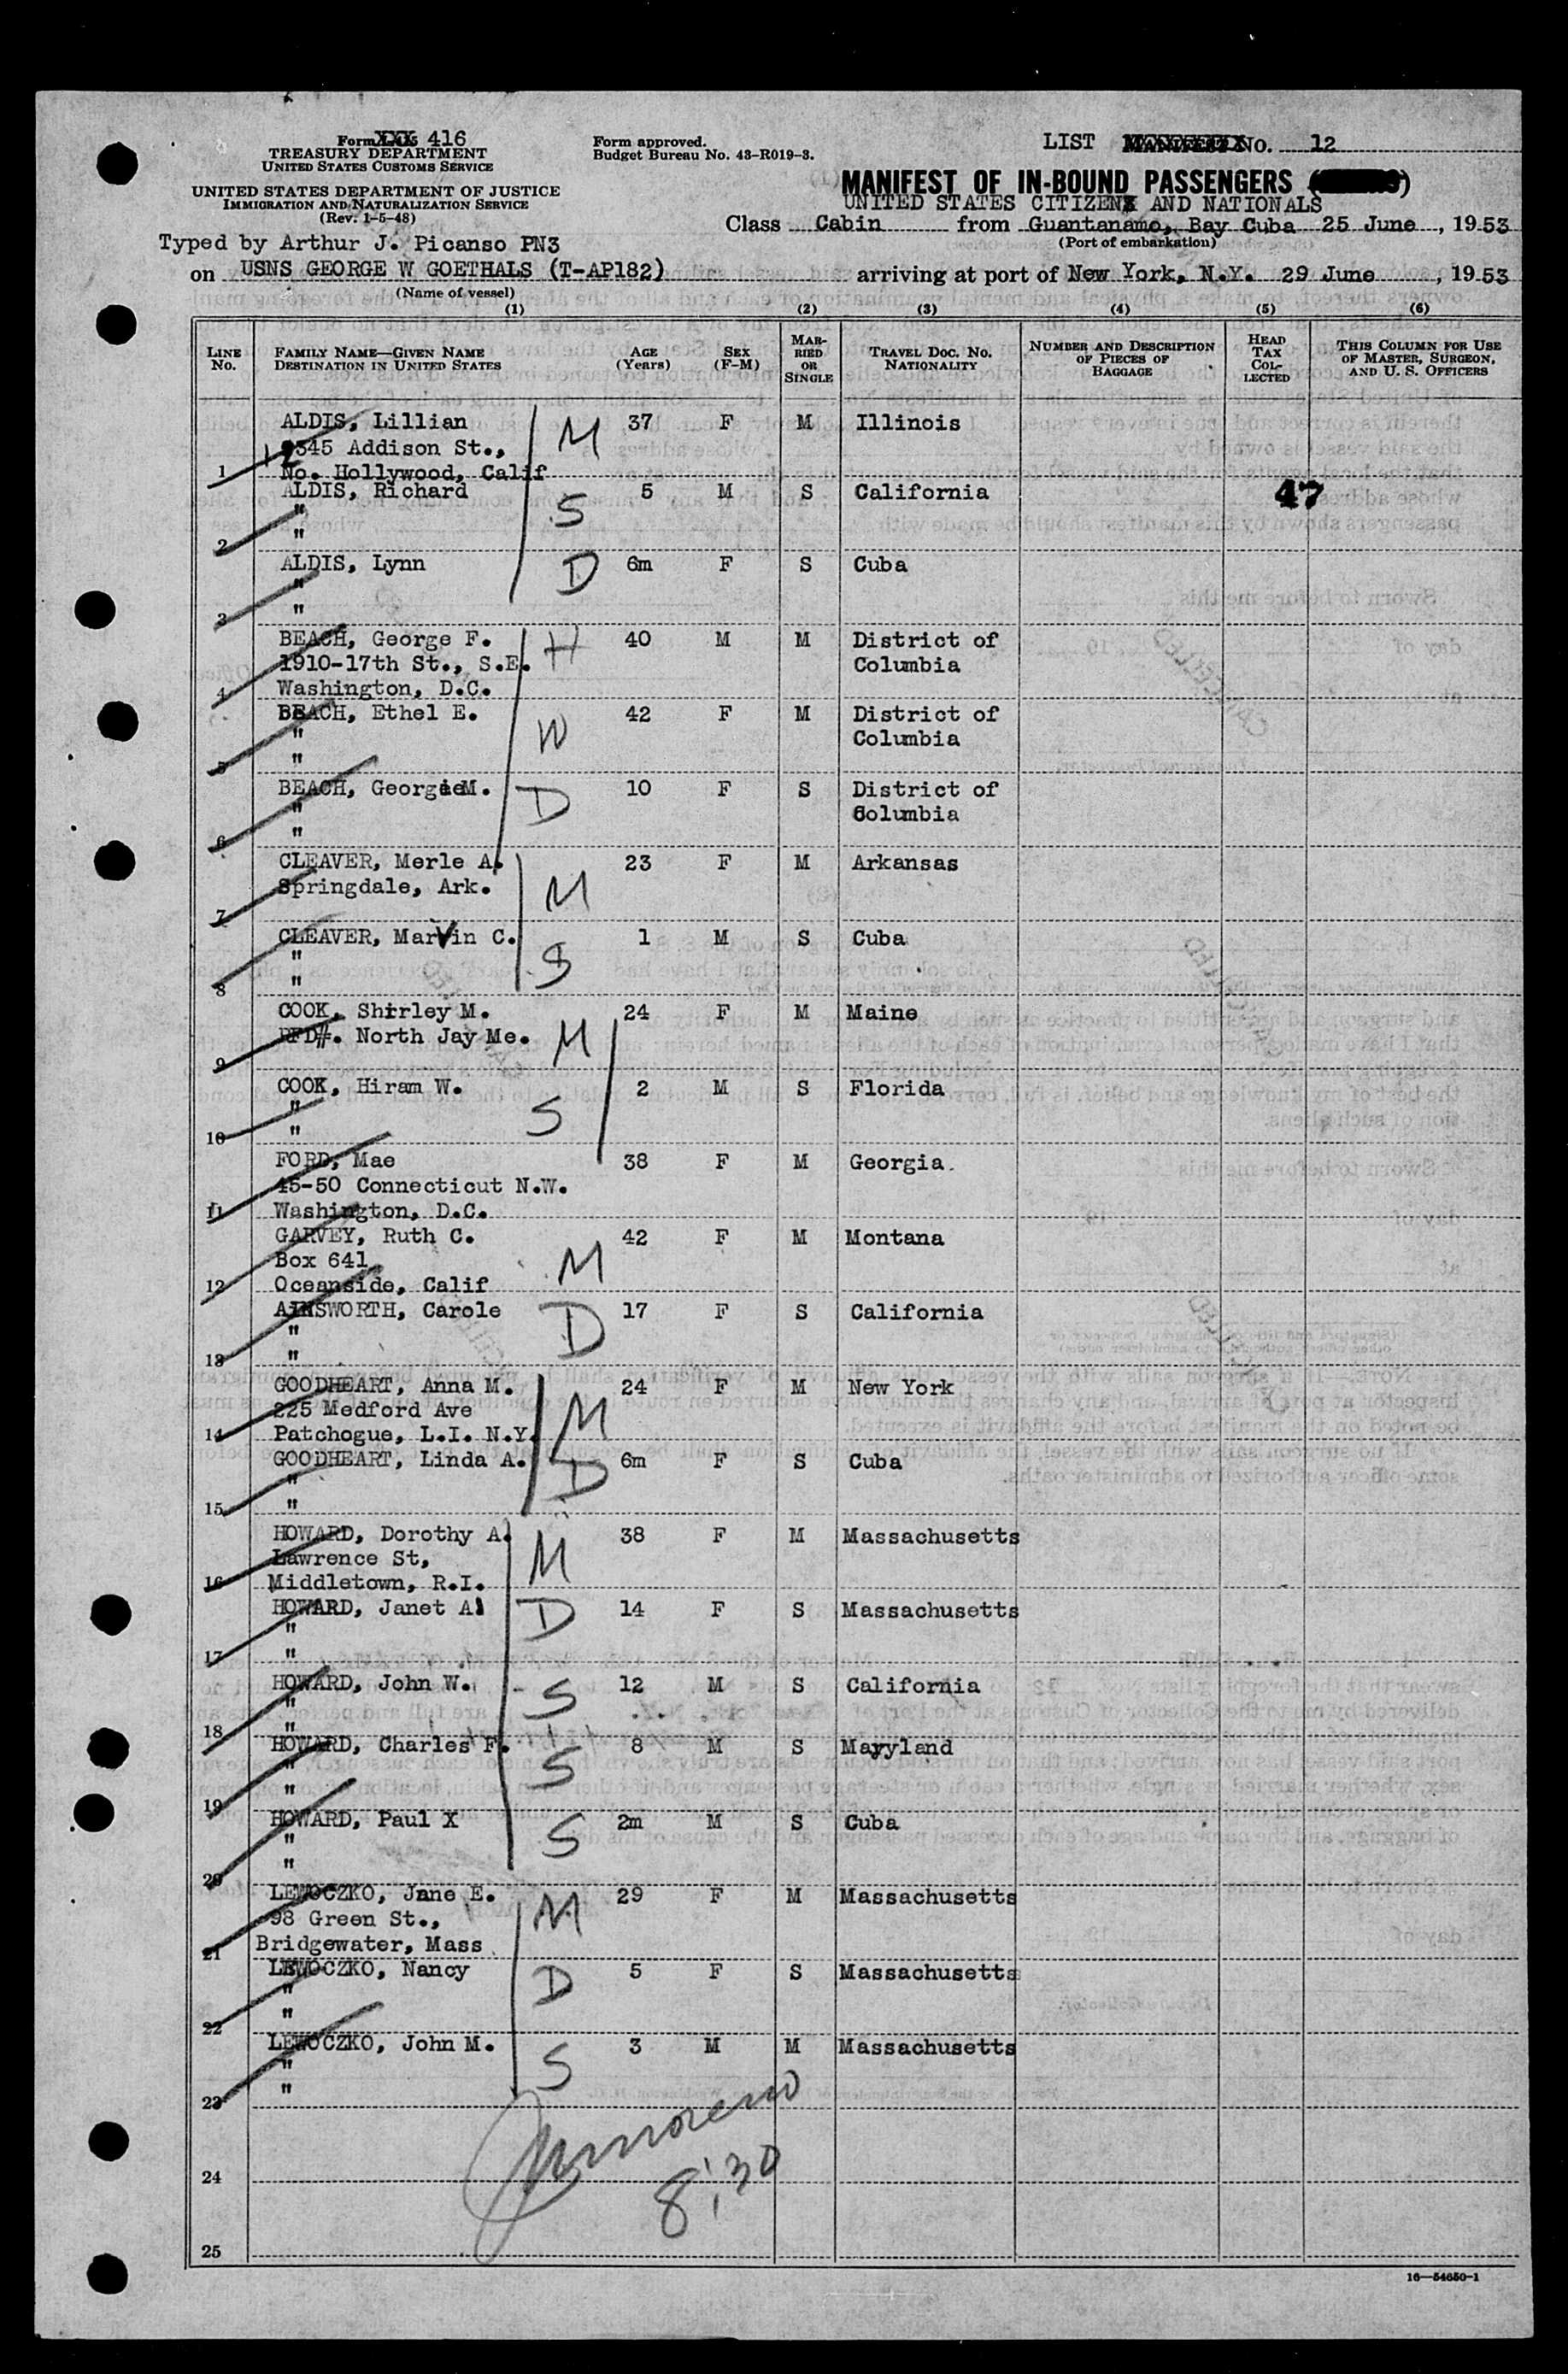 Form XXX 416
TREASURY DEPARTMENT
UNITED STATES CUSTOMS SERVICE
UNITED STATES DEPARTMENT OF JUSTICE
IMMIGRATION AND NATURALIZATION SERVICE
(Rev. 1-5-48)
Form approved.
Budget Bureau No. 43-R019-3.
LIST No. 12
MANIFEST OF IN-BOUND PASSENGERS
UNITED STATES CITIZENS AND NATIONALS
Class Cabin from Guantanamo, Bay Cuba 25 June, 1953
(Port of embarkation)
Typed by Arthur J. Picanso PN3
on USNS GEORGE W GOETHALS (T-AP182) arriving at port of New York, N.Y. 29 June, 1953
(Name of vessel)
(1) (2) (3) (4) (5) (6)
LINE No. FAMILY NAME—GIVEN NAME DESTINATION IN UNITED STATES AGE (Years) SEX (F-M) MARRIED OR SINGLE TRAVEL DOC. NO. NATIONALITY NUMBER AND DESCRIPTION OF PIECES OF BAGGAGE HEAD TAX COLLECTED THIS COLUMN FOR USE OF MASTER, SURGEON, AND U. S. OFFICERS
ALDIS, Lillian M 37 F M Illinois
345 Addison St.,
1 No. Hollywood, Calif
ALDIS, Richard S 5 M S California 47
"
2 "
ALDIS, Lynn D 6m F S Cuba
"
3 "
BEACH, George F. H 40 M M District of
1910-17th St., S.E. Columbia
4 Washington, D.C.
BEACH, Ethel E. W 42 F M District of
" Columbia
5 "
BEACH, Georgie M. D 10 F S District of
" Columbia
6 "
CLEAVER, Merle A. M 23 F M Arkansas
Springdale, Ark.
7
CLEAVER, Marvin C. S 1 M S Cuba
"
8 "
COOK, Shirley M. M 24 F M Maine
RFD#. North Jay Me.
9
COOK, Hiram W. S 2 M S Florida
"
10 "
FORD, Mae 38 F M Georgia.
45-50 Connecticut N.W.
11 Washington, D.C.
GARVEY, Ruth C. M 42 F M Montana
Box 641
12 Oceanside, Calif
AINSWORTH, Carole D 17 F S California
"
13 "
GOODHEART, Anna M. M 24 F M New York
225 Medford Ave
14 Patchogue, L.I. N.Y.
GOODHEART, Linda A. D 6m F S Cuba
"
15 "
HOWARD, Dorothy A. M 38 F M Massachusetts
Lawrence St,
16 Middletown, R.I.
HOWARD, Janet A. D 14 F S Massachusetts
"
17 "
HOWARD, John W. S 12 M S California
"
18 "
HOWARD, Charles F. S 8 M S Maryland
"
19 "
HOWARD, Paul X S 2m M S Cuba
"
20 "
LEWOCZKO, Jane E. M 29 F M Massachusetts
98 Green St.,
21 Bridgewater, Mass
LEWOCZKO, Nancy D 5 F S Massachusetts
"
22 "
LEWOCZKO, John M. S 3 M M Massachusetts
"
23 "
24
8:30
25
16—54650-1